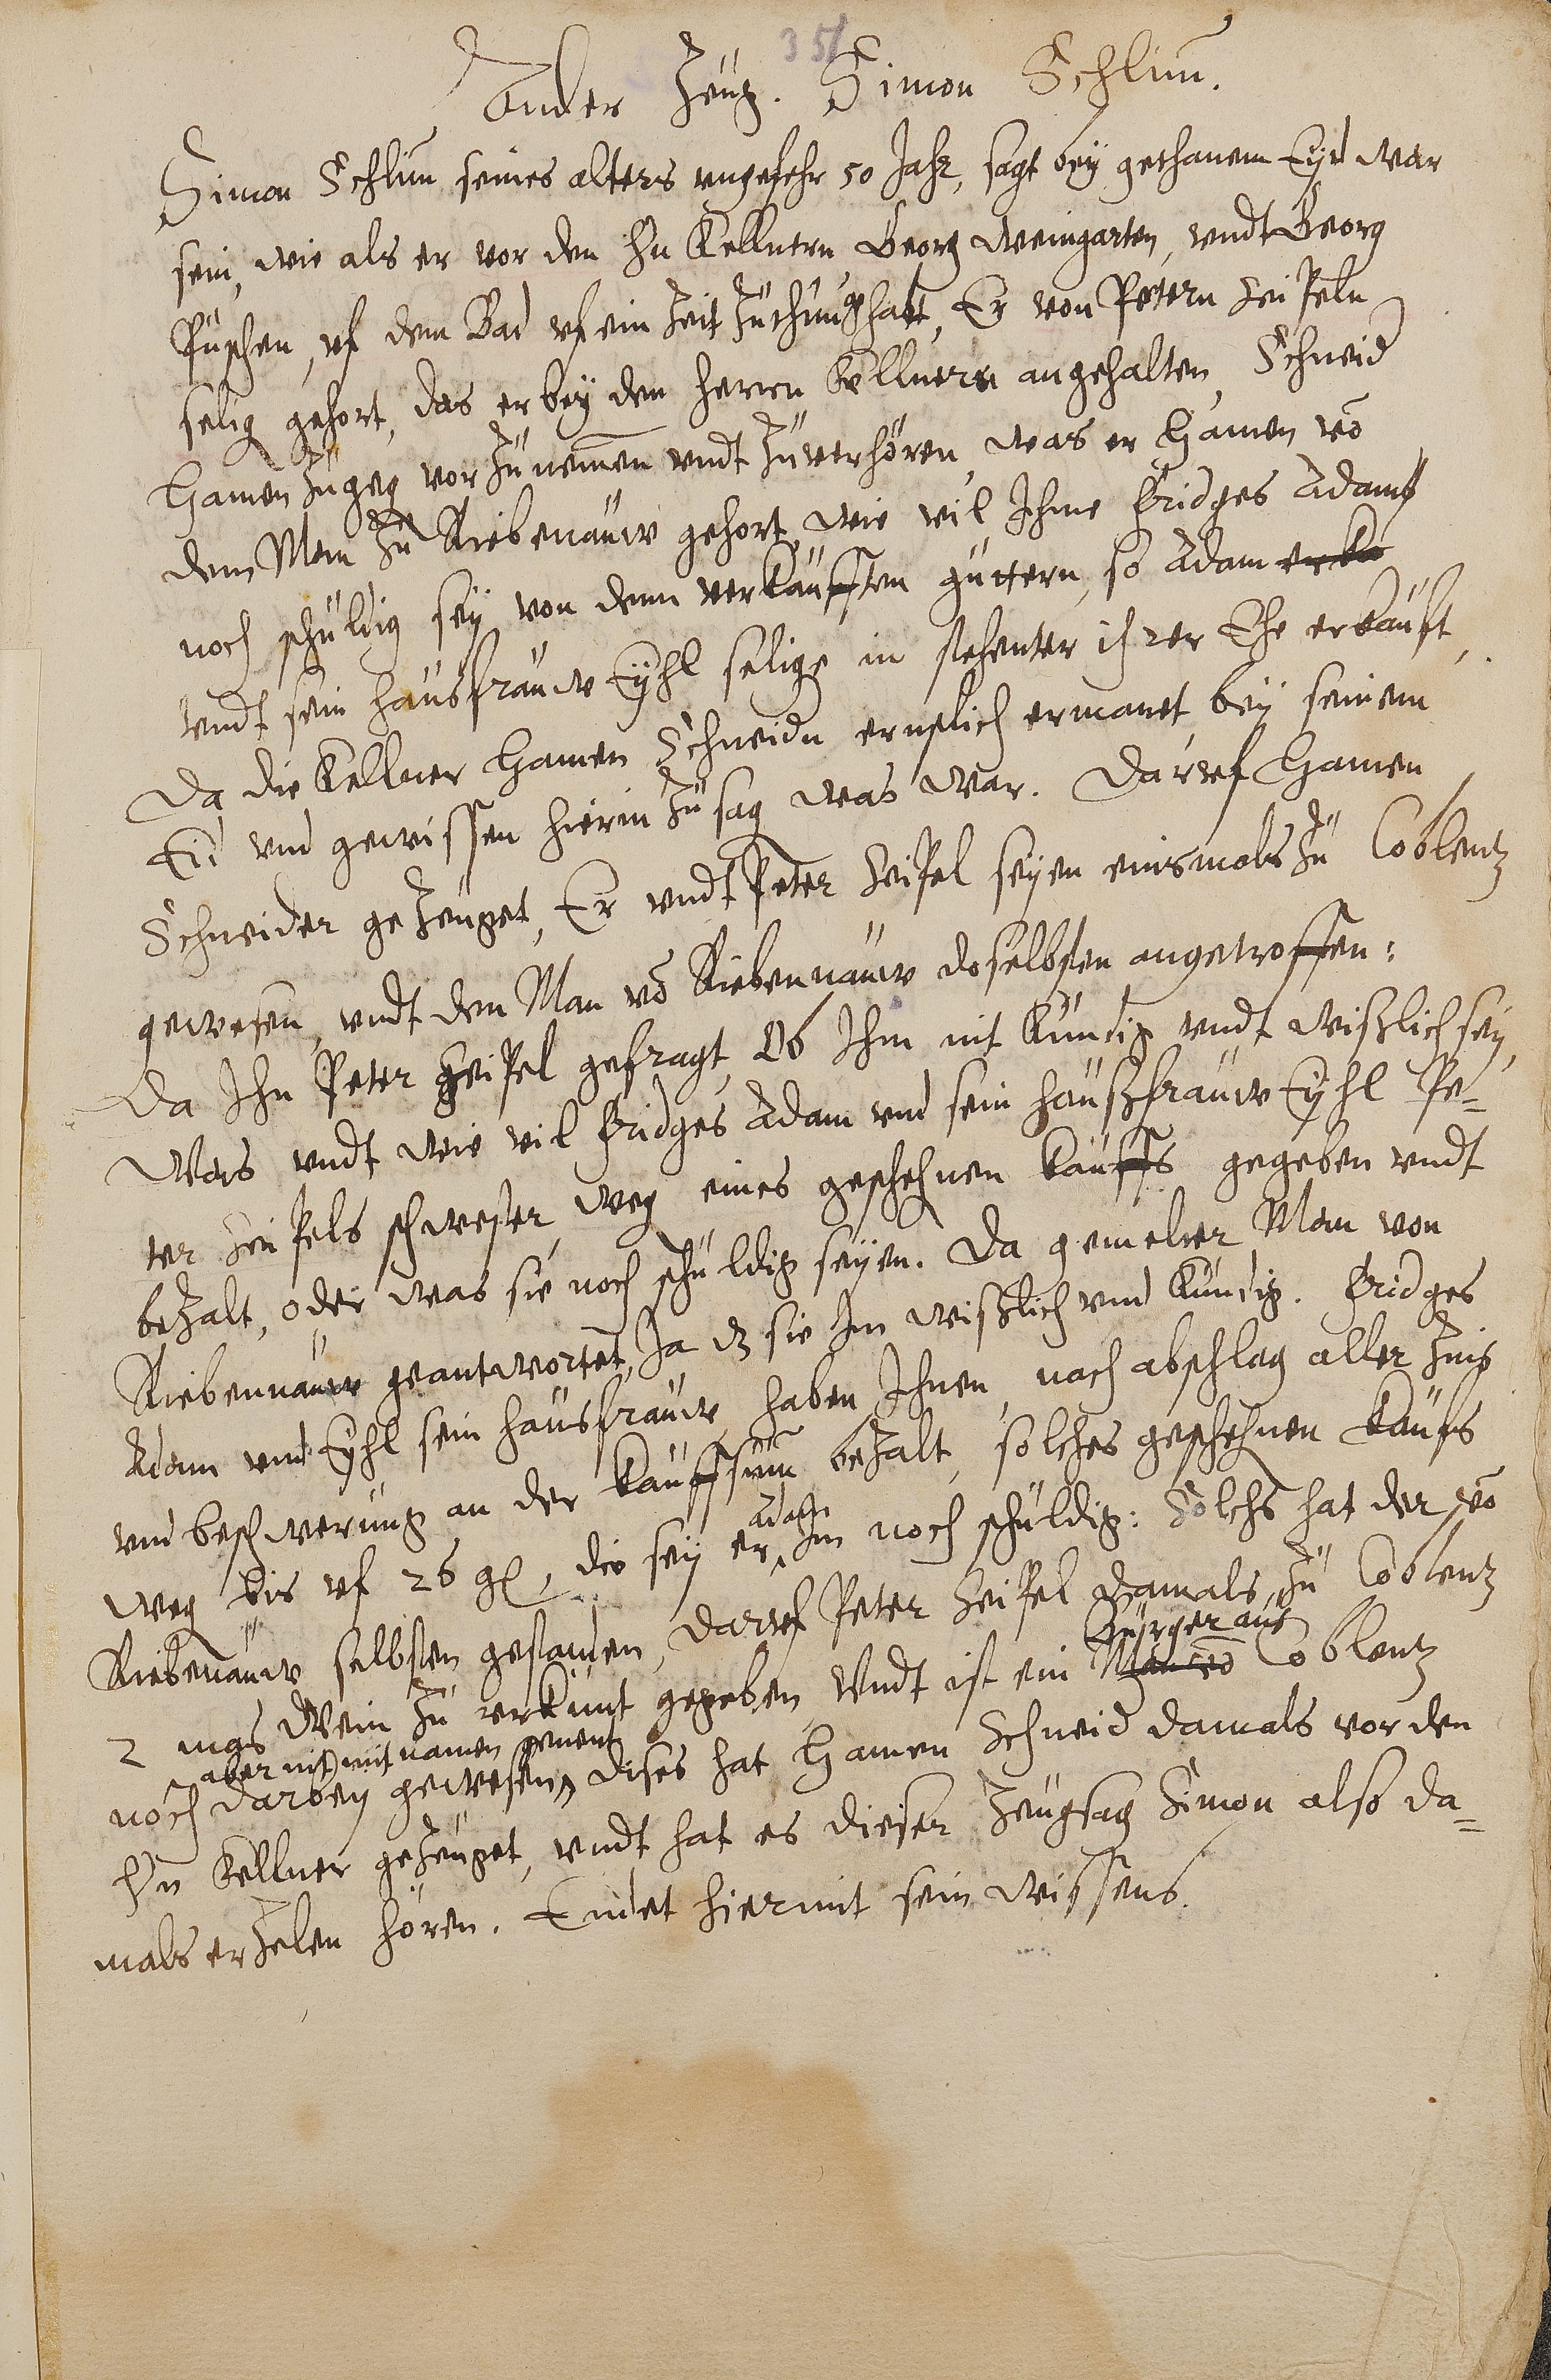 351
Ander Zeug. Simon Schlim.
Simon Schlim seines alters ungefehr 50 Jahr, sagt bey gethanem Eyd war
sein, wie als er vor den Hn Kellnern Georg Weingarten, undt Georg
Puschen, uf dem Bad uf ein Zeit zuthun ghatt, Er von Petern Seipeln
selig gehort, das er bey den herrn Kellnern angehalten, Schneid
Hamen zugeg vor zu nemen undt zuverhören, was er Hamen vō
dem Man zu Riebenauw gehort, wie vil Ihme Bridges Adams
noch schuldig sey von denn verkaufften guttern, so Adam erka
undt sein hausfrauw Eyhl selige in stehenter ihrer Ehe erkauft,
Da die Kellner Hamen Schneidn ernstlich ermanet, bey seinem
Eid und gewissen hierin zu sag was war. Daruf Hamen
Schneider gezeuget, Er undt Peter Seipel seyen einsmals zu Coblentz
gewesen, undt den Man vō Riebennauw doselbsten angetroffen:
Da Ihn Peter Seipel gefragt, Ob Ihm nit Kundig undt wißlich sey,
Was undt wie vil Bridges Adam und sein haußfrauw Eyhl Pe-
ter Seipels schwester, weg eines geschehnen kauffs gegeben undt
bezalt, oder was sie noch schuldig seyen. Da gemelter Man von
Riebennauw geantwortet, Ja dz sie Im wißlich und Kundig. Bridges
Adam und Eyhl sein hausfrauw, haben Ihnen, nach abschlag aller Zins
und beschwerung an der kauffsum bezalt, solches geschehnen kaufs
weg bis uf 26 gl, die sey er Adam Im noch schuldig: Solchs hat der vō
Riebenauw selbsten gestanden, Daruf Peter Seipel damals zu Coblentz
2 mas Wein zu urkunt gegeben, Undt ist ein Man vō Burger aus Coblentz
noch darbey gewesen, aber nit mit namen genent dises hat Hamen Schneid damals vor den
Hn Kellner gezeuget, undt hat es dieser Zeugsag Simon also da-
mals erzelen hören. Endet hiermit sein wissens.